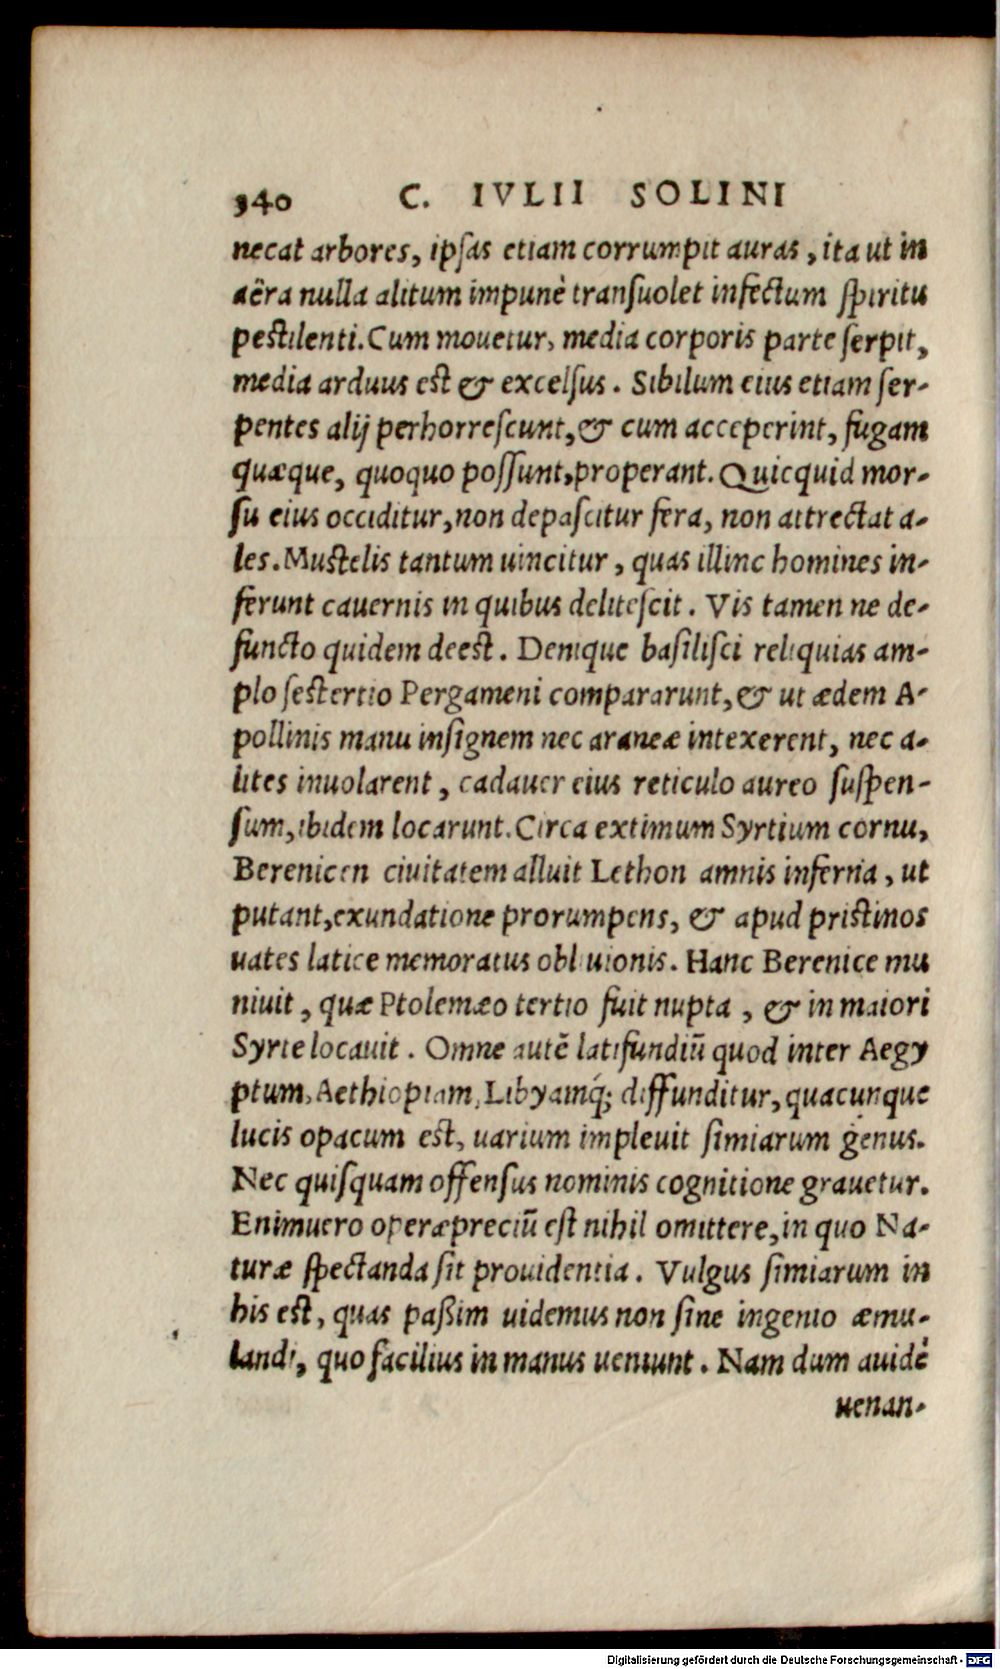 340 C. IVLII SOLINI
necat arbores, ipsas etiam corrumpit auras, ita ut in
aëra nulla alitum impunè transuolet infectum spiritu
pestilenti. Cum mouetur, media corporis parte serpit,
media arduus est & excelsus. Sibilum eius etiam ser-
pentes alij perhorrescunt, & cum acceperint, fugam
quæque, quoquo possunt, properant. Quicquid mor-
su eius occiditur, non depascitur fera, non attrectat a-
les. Mustelis tantum uincitur, quas illinc homines in-
ferunt cauernis in quibus delitescit. Vis tamen ne de-
functo quidem deest. Denique basilisci reliquias am-
plo sestertio Pergameni compararunt, & ut ædem A-
pollinis manu insignem nec araneæ intexerent, nec a-
lites inuolarent, cadauer eius reticulo aureo suspen-
sum, ibidem locarunt. Circa extimum Syrtium cornu,
Berenicen ciuitatem alluit Lethon amnis inferna, ut
putant, exundatione prorumpens, & apud pristinos
uates latice memoratus obliuionis. Hanc Berenice mu
niuit, quæ Ptolemæo tertio fuit nupta, & in maiori
Syrte locauit. Omne autē latifundiū quod inter Aegy
ptum, Aethiopiam, Libyamq́; diffunditur, quacunque
lucis opacum est, uarium impleuit simiarum genus.
Nec quisquam offensus nominis cognitione grauetur.
Enimuero operæpreciū est nihil omittere, in quo Na-
turæ spectanda sit prouidentia. Vulgus simiarum in
his est, quas paßim uidemus non sine ingenio æmu-
landi, quo facilius in manus ueniunt. Nam dum auidè
uenan-
Digitalisierung gefördert durch die Deutsche Forschungsgemeinschaft - DFG